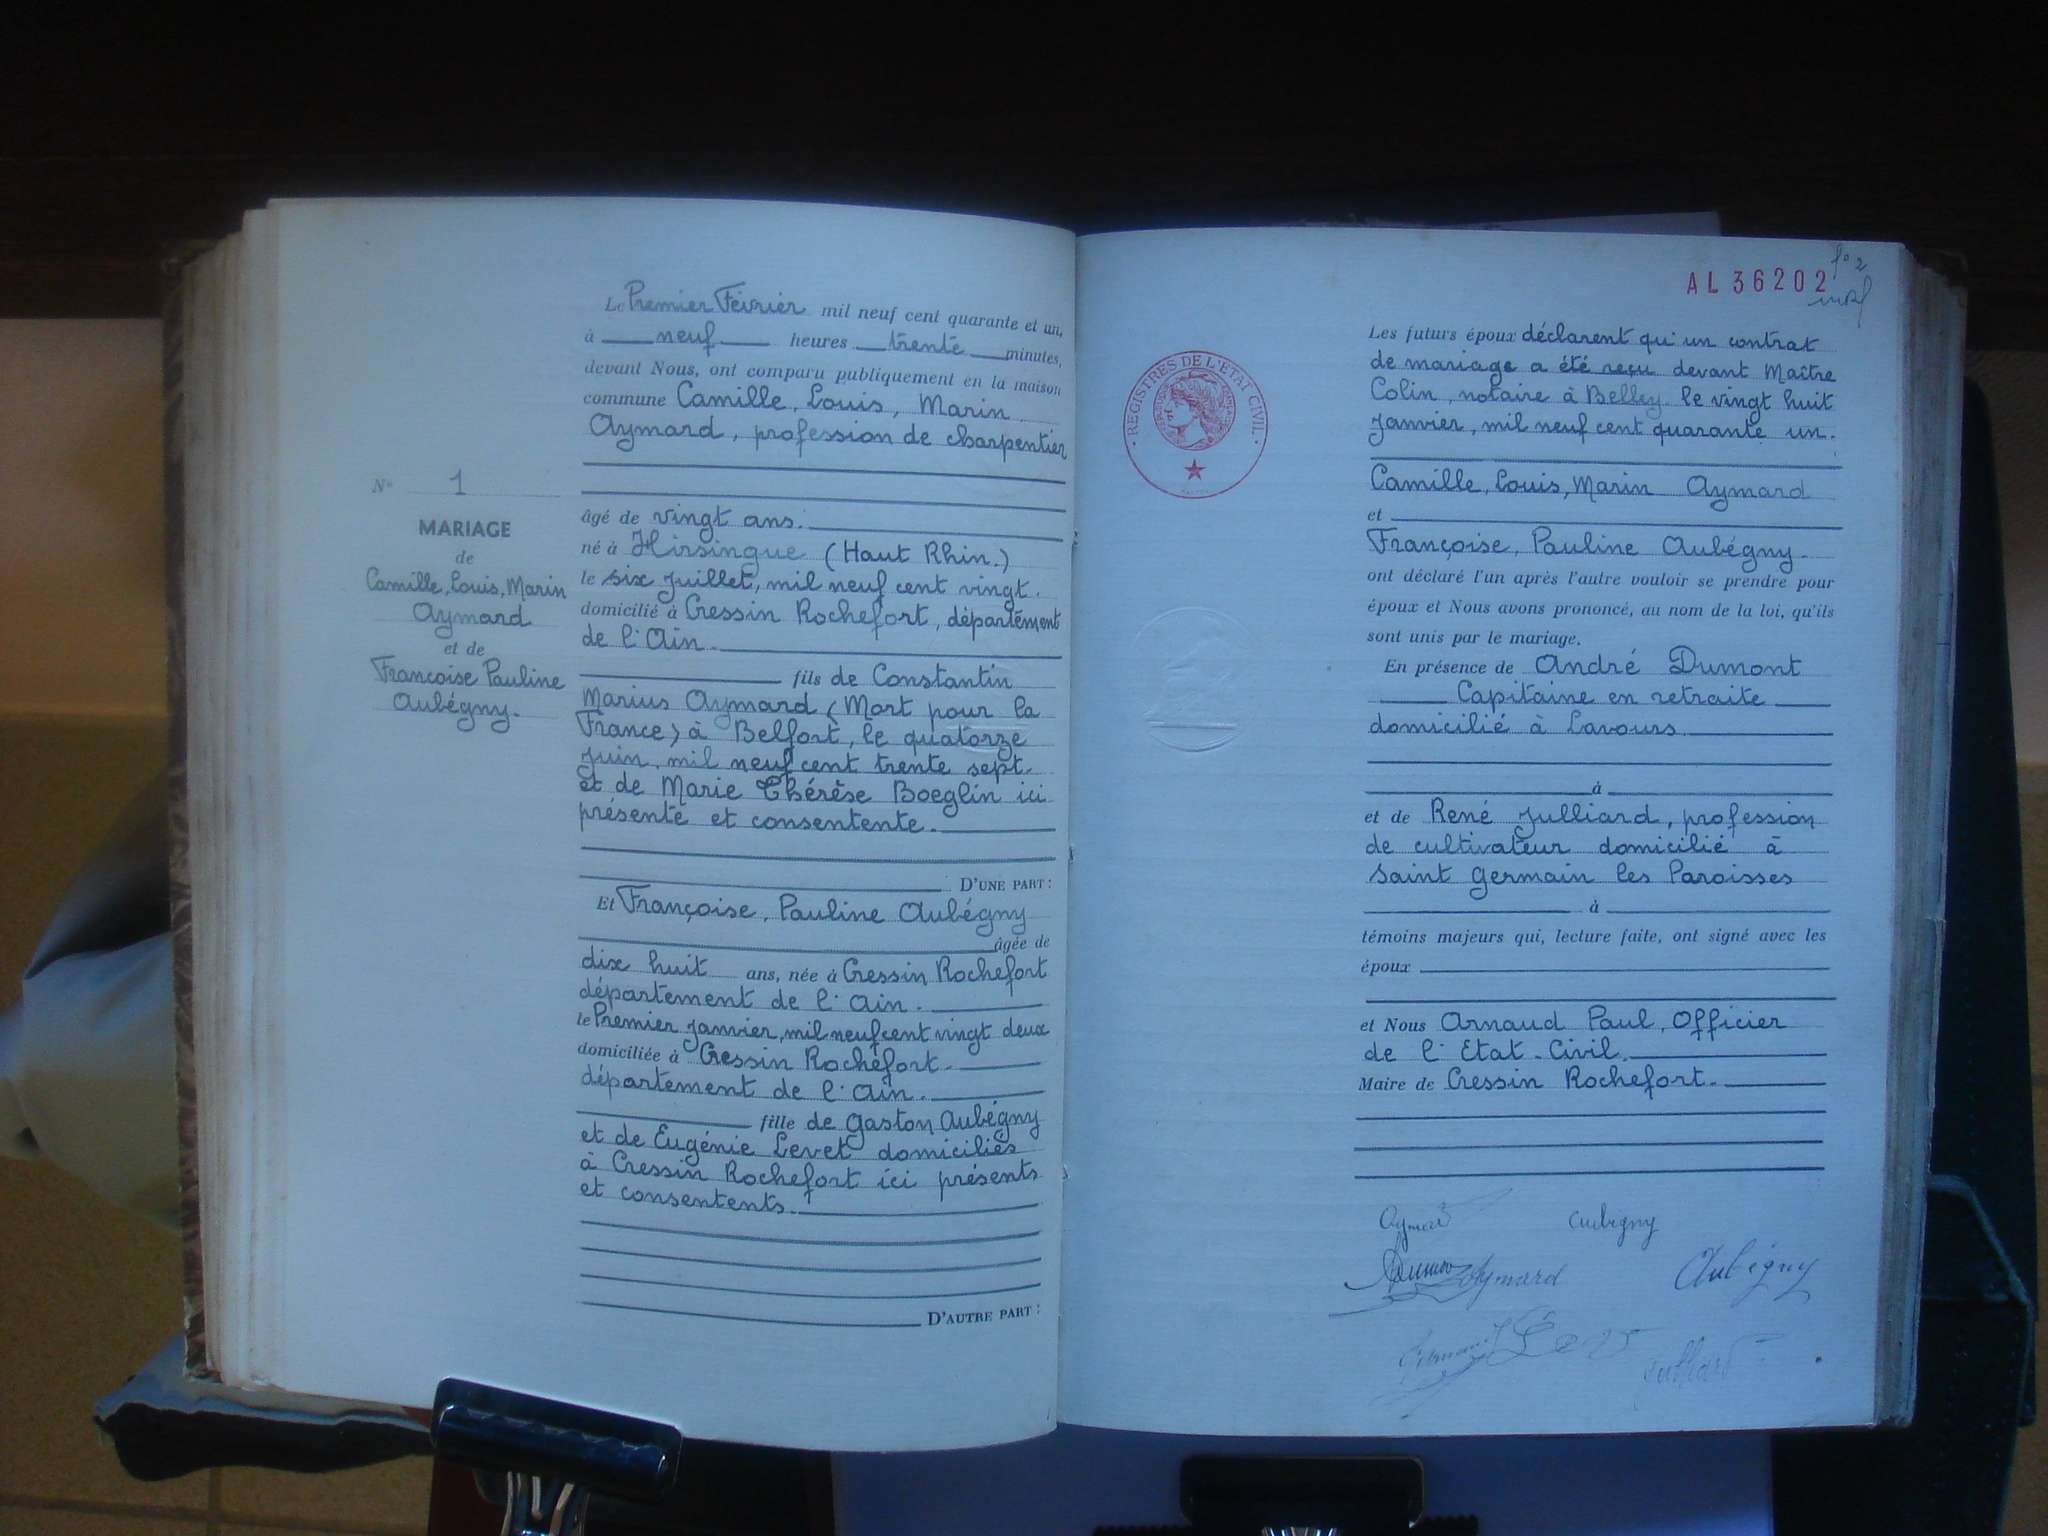 Le Premier Février mil neuf cent quarante et un,
à neuf heures trente minutes,
devant Nous, ont comparu publiquement en la maison
commune Camille, Louis, Marin
Aymard, profession de charpentier
N° 1
MARIAGE
de
Camille, Louis, Marin
Aymard
et de
Francoise Pauline
Aubégny.
âgé de vingt ans.
né à Hirsingue (Haut Rhin.)
le six juillet, mil neuf cent vingt.
domicilié à Cressin Rochefort, département
de l'Ain.
fils de Constantin
Marius Aymard (Mort pour la
France) à Belfort, le quatorze
juin, mil neuf cent trente sept.
et de Marie Thérèse Boeglin ici
présente et consentente.
D'UNE PART :
Et Françoise, Pauline Aubégny
âgée de
dix huit ans, née à Cressin Rochefort
département de l'Ain.
le Premier janvier, mil neuf cent vingt deux
domiciliée à Cressin Rochefort.
département de l'Ain.
fille de Gaston Aubégny
et de Eugénie Levet domiciliés
à Cressin Rochefort ici présents
et consentents.
D'AUTRE PART :
fo 2
AL 36202
REGISTRES DE L'ETAT CIVIL
Les futurs époux déclarent qu'un contrat
de mariage a été reçu devant Maître
Colin, notaire à Belley le vingt huit
janvier, mil neuf cent quarante un.
Camille, Louis, Marin Aymard
et
Françoise, Pauline Aubégny.
ont déclaré l'un après l'autre vouloir se prendre pour
époux et Nous avons prononcé, au nom de la loi, qu'ils
sont unis par le mariage.
En présence de André Dumont
Capitaine en retraite
domicilié à Lavours
à
et de René Julliard, profession
de cultivateur domicilié à
Saint Germain les Paroisses
à
témoins majeurs qui, lecture faite, ont signé avec les
époux
et Nous Arnaud Paul, Officier
de l'Etat-Civil.
Maire de Cressin Rochefort.
Aymard Aubigny
Aymard Aubégny